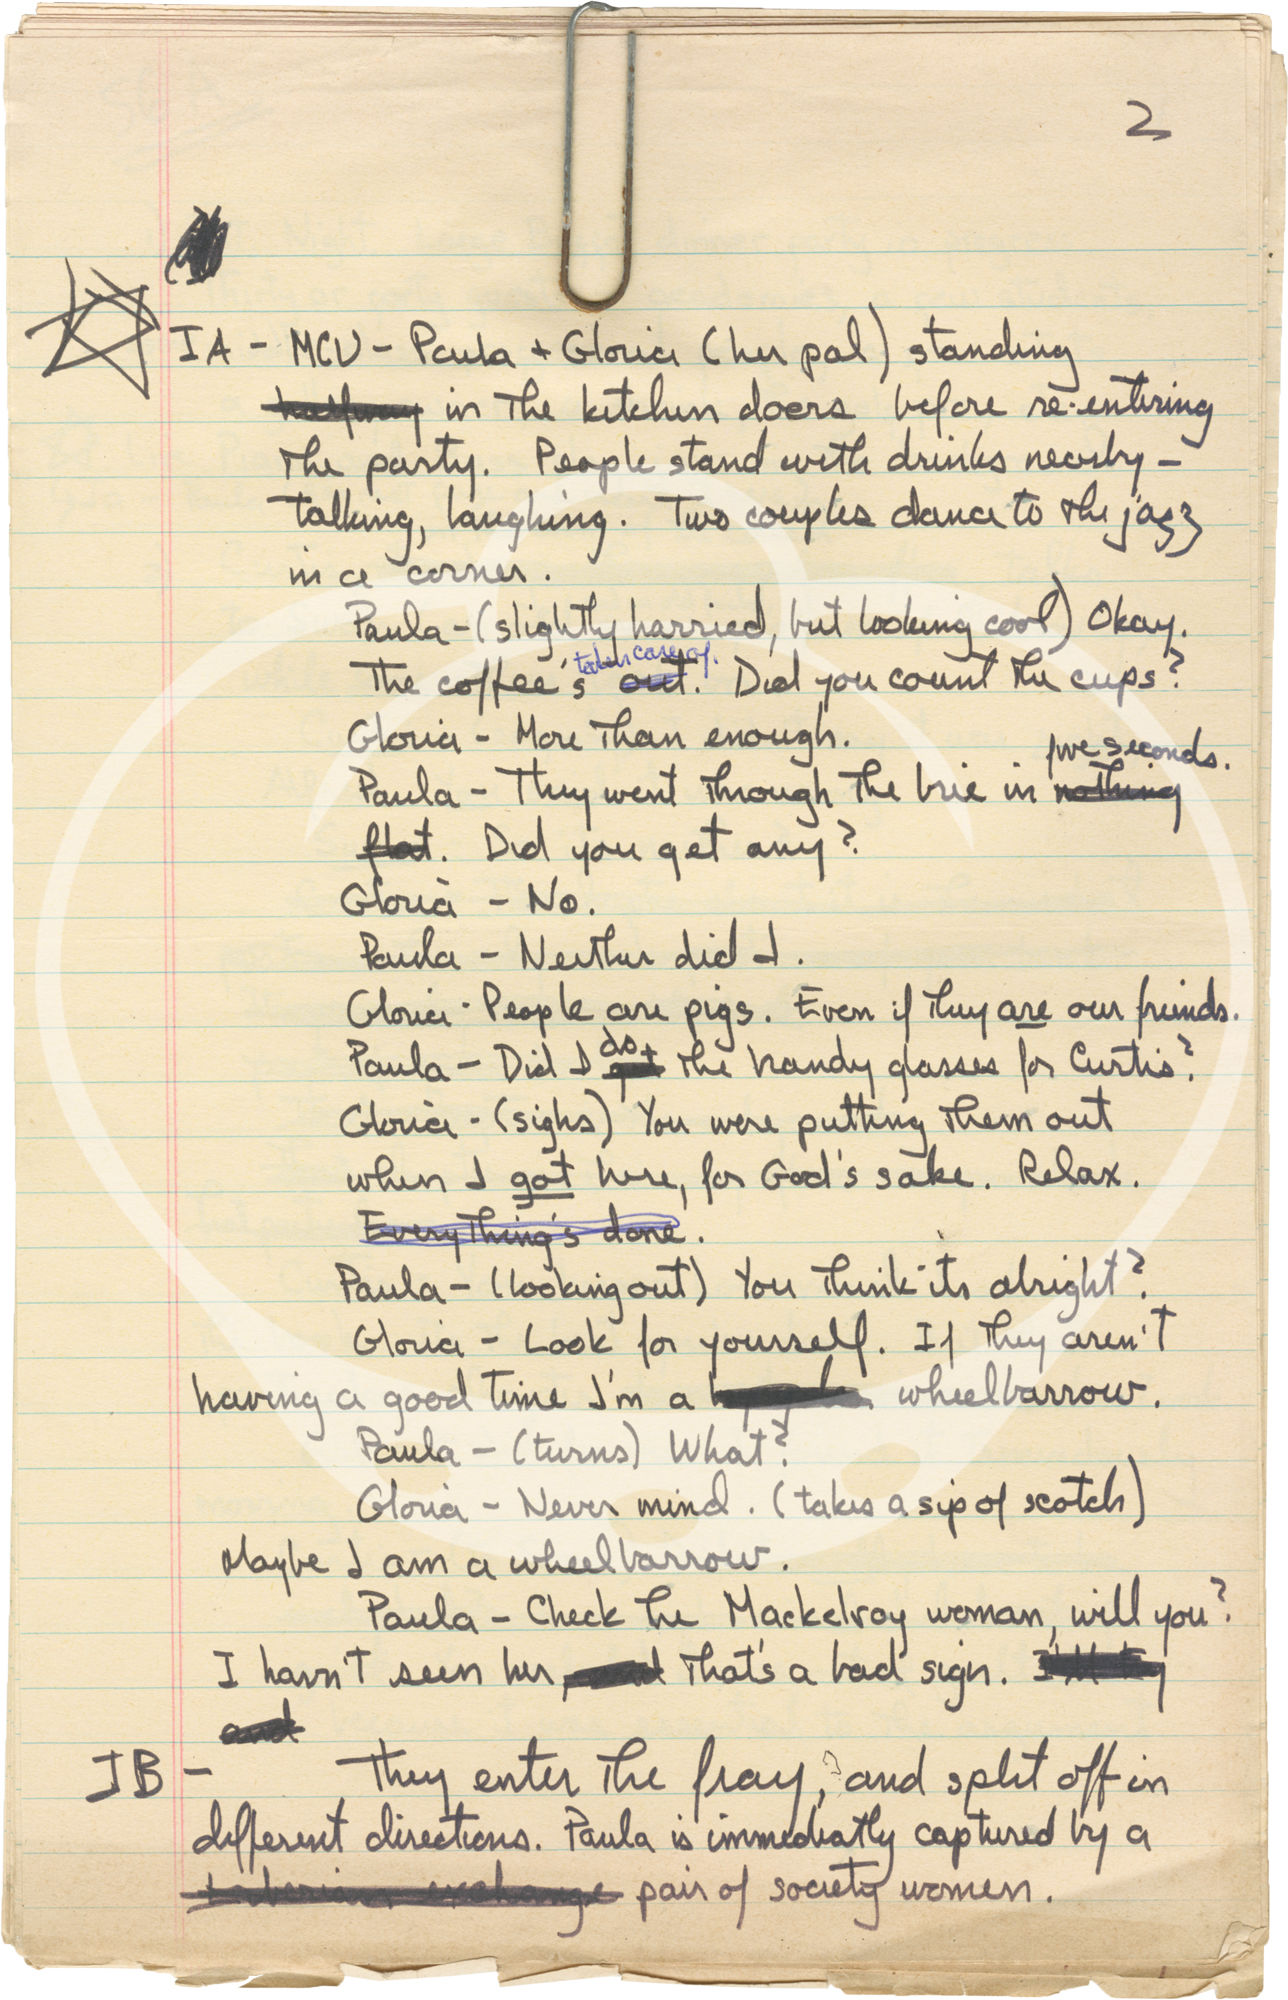 2
IA - MCU - Paula + Gloria (her pal) standing
halfway in the kitchen doors before re-entering
the party. People stand with drinks nearby -
talking, laughing. Two couples dance to the jazz
in a corner.
Paula - (slightly harried, but looking cool) Okay.
taken care of.
The coffee's out. Did you count the cups?
Gloria - More than enough.
five seconds.
Paula - They went through the brie in nothing
flat. Did you get any?
Gloria - No.
Paula - Neither did I.
Gloria - People are pigs. Even if they are our freinds.
do
Paula - Did I get the handy glasses for Curtis?
Gloria - (sighs) You were putting them out
when I got here, for God's sake. Relax.
Everything's done.
Paula - (looking out) You think its alright?
Gloria - Look for yourself. If they aren't
having a good time I'm a wheelbarrow.
Paula - (turns) What?
Gloria - Never mind. (takes a sip of scotch)
Maybe I am a wheelbarrow.
Paula - Check the Mackelroy woman, will you?
I havn't seen her, and That's a bad sign.
and
IB - They enter the fray, and split off in
different directions. Paula is immediatly captured by a
exchange pair of society women.